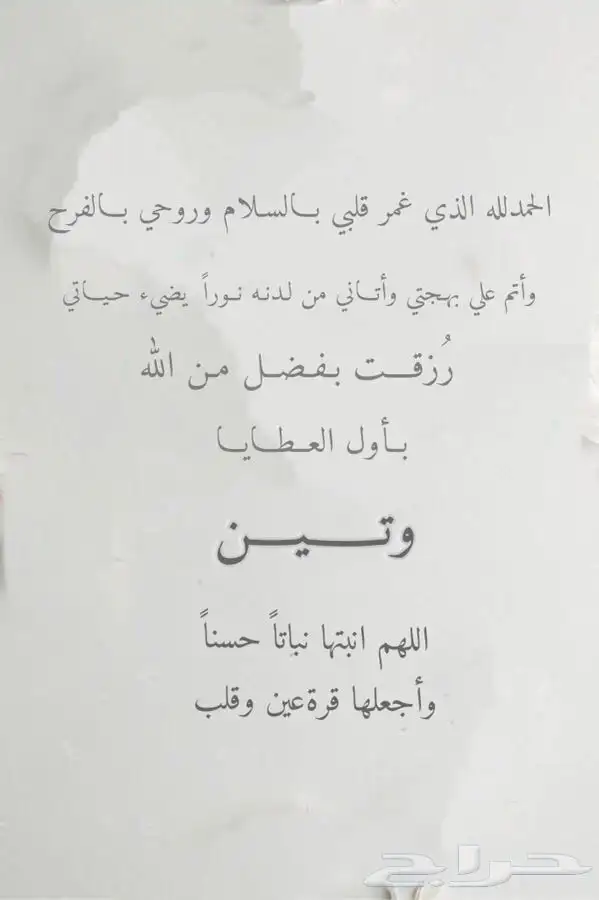 الحمدلله الذي غمر قلبي بالسلام وروحي بالفرح
وأتم علي بهجتي وأتاني من لدنه نوراً يضيء حياتي
رُزقت بفضل من الله
بأول العطايا
وتين
اللهم انبتها نباتاً حسناً
وأجعلها قرةعين وقلب
حراج